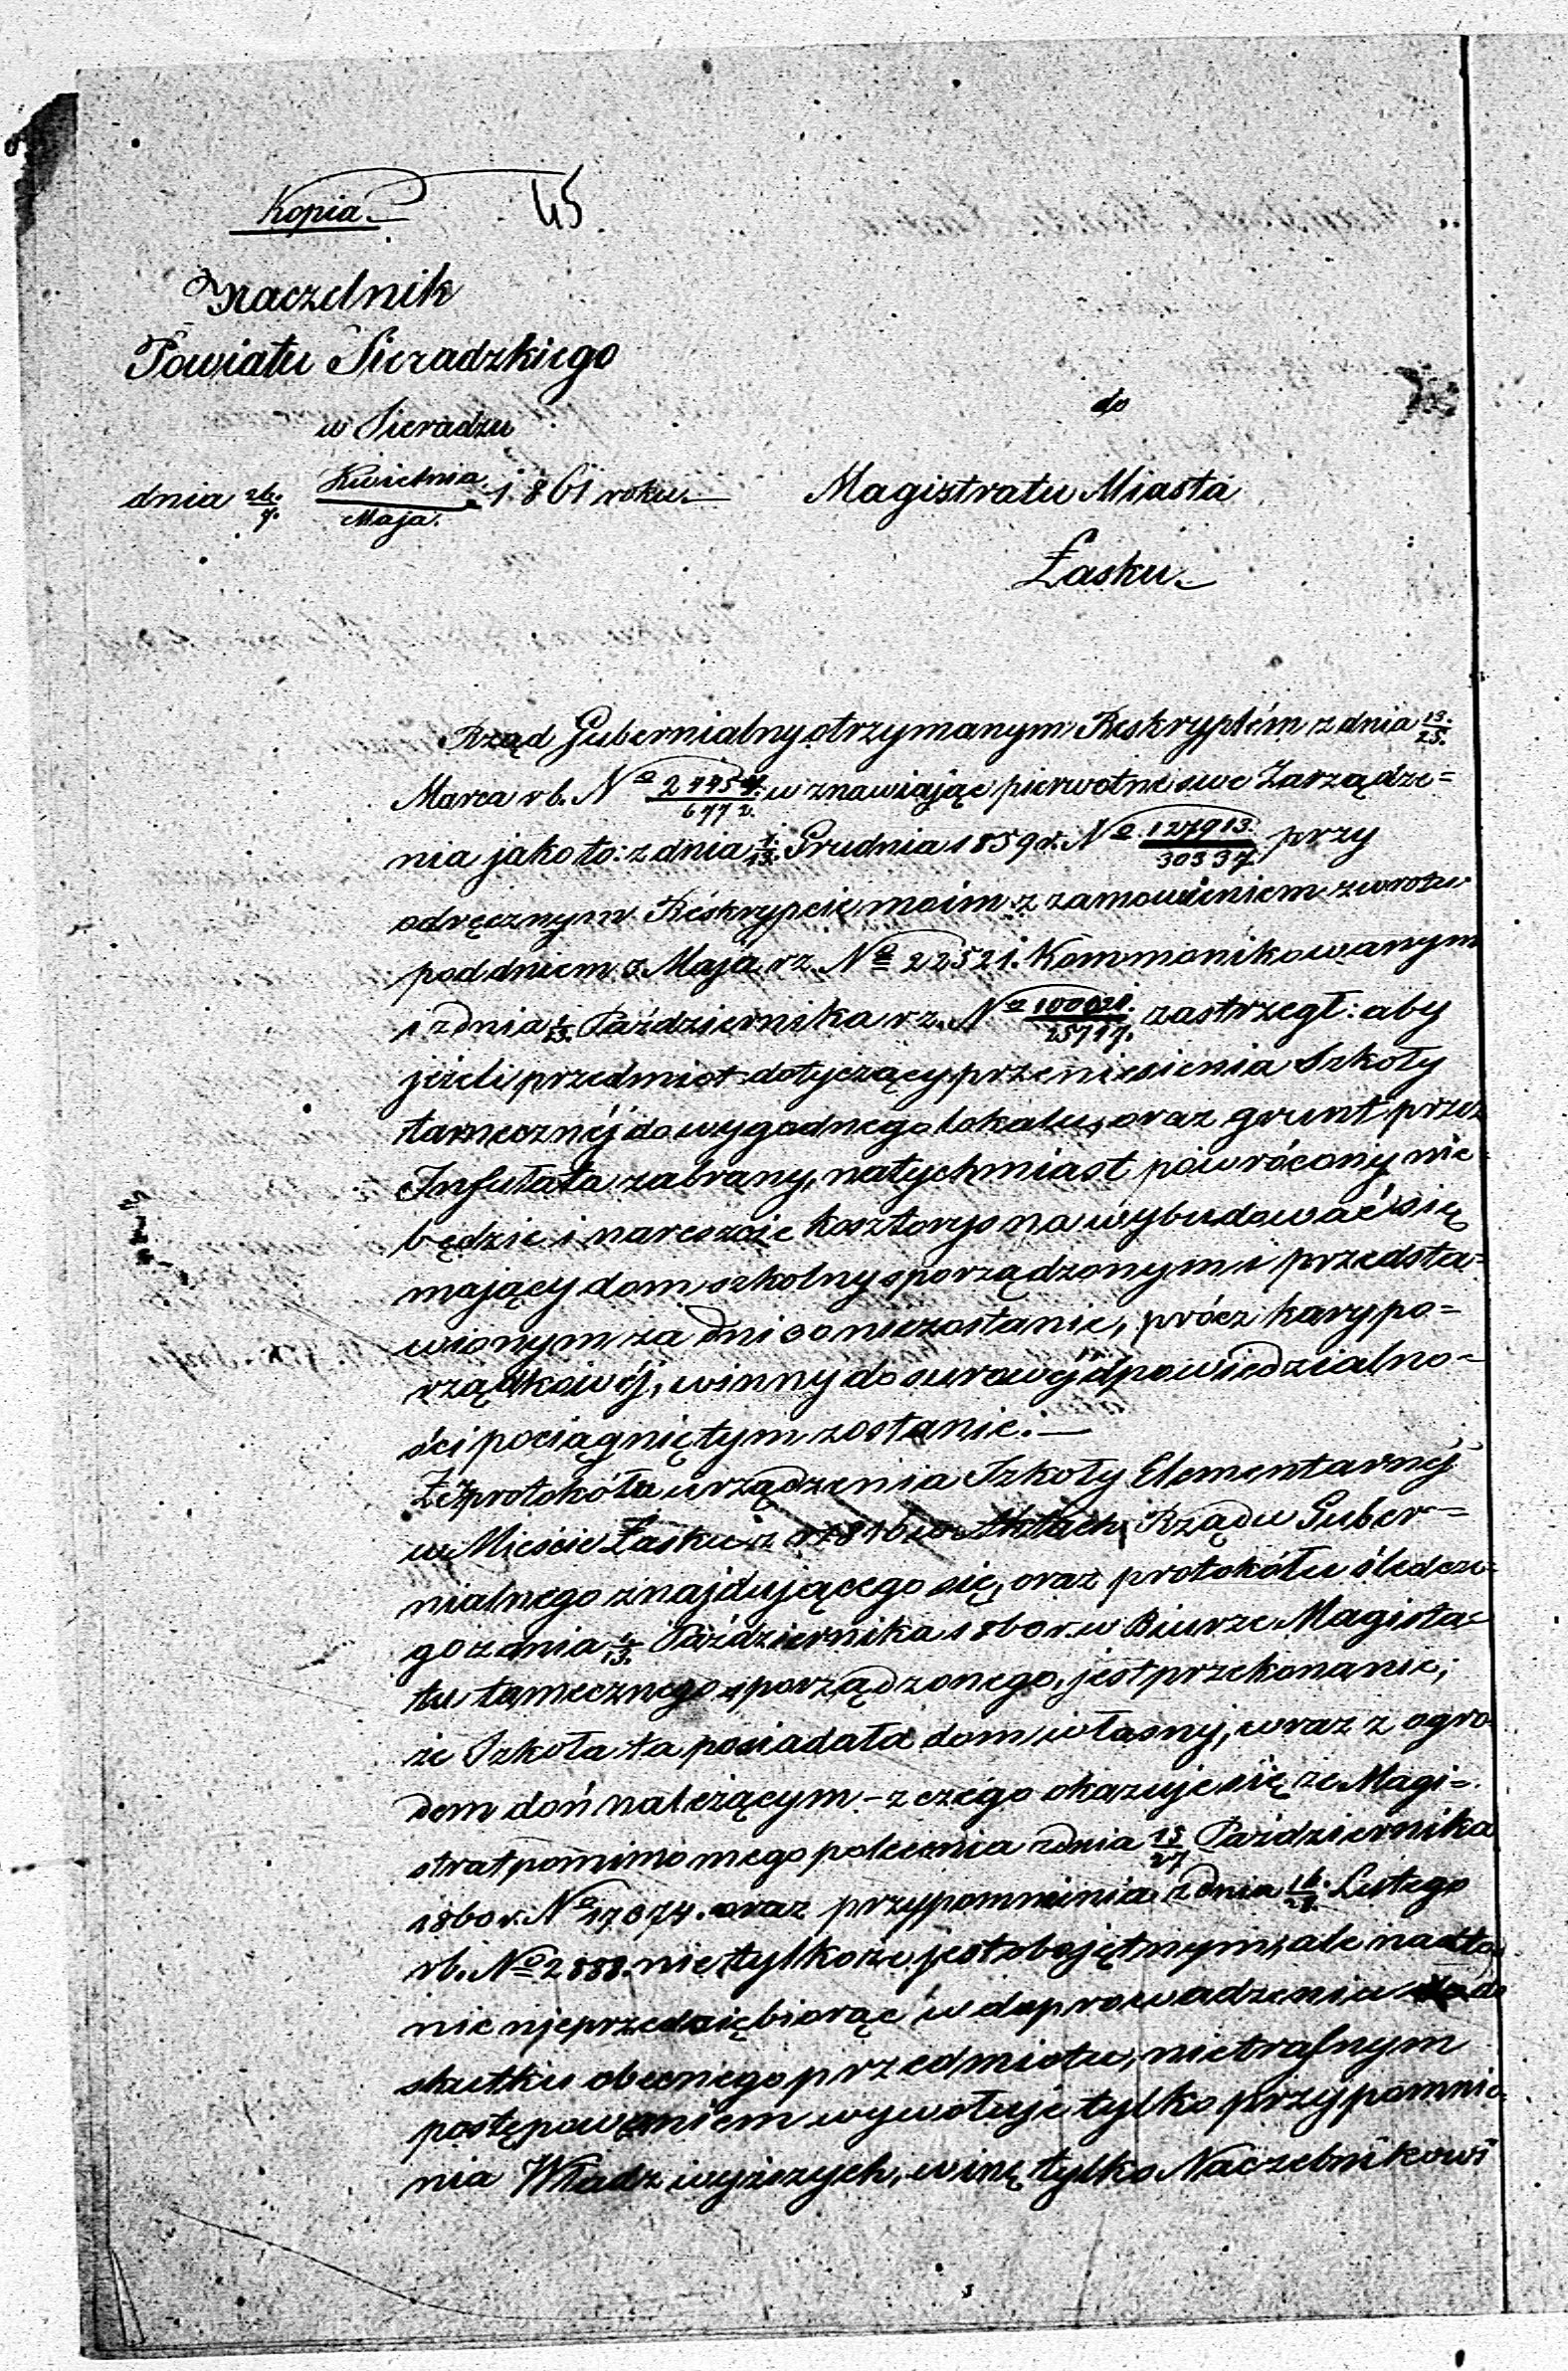 Kopia. 45
Naczelnik
Powiatu Sieradzkiego
w Sieradzu
dnia 26/7. Kwietnia/Maja. 1861 roku.
do
Magistratu Miasta
Łasku.
Rząd Gubernialny otrzymanym Reskryptem z dnia 13/25.
Marca rb. No w znawiając pierwotne swe Zarządze=
nia jako to: z dnia 1/13. Grudnia 1859 r. No 127913/30337. przy
odręcznym Reskrypcie moim z zamowieniem zwrotu
pod dniem 3. Maja rz. No 22521. Kommonikowanym
i z dnia 1/13. Października rz. No zastrzegł: aby
jeżeli przedmiot dotyczący przeniesienia Szkoły
tamecznéj do wygodnego lokalu, oraz grunt przez
Infułata zabrany, natychmiast powrócony nie
będzie i nareszcie kosztorys na wybudować się
mający dom szkolny sporządzonym i przedsta=
wionym za dni 30 nie zostanie, prócz kary po=
rządkowéj, winny do surowéj odpowiedzialno=
ści pociągniętym zostanie.—
Że z protokółu urządzenia Szkoły Elementarnéj
w Mieście Łasku z r Aktach Rządu Guber=
nialnego znajdującego się, oraz protokółu śledcze=
go z dnia 1/13. Października 1860 r. w Biurze Magistra=
tu tamecznego sporządzonego, jest przekonanie;
że Szkoła ta posiadała dom własny, wraz z ogro
dem doń należącym – z czego okazuje się że Magi=
strat pomimo mego polecenia z dnia 15/27 Października
1860 r. No 17074. oraz przypomnienia z dnia 16/28. Lutego
rb. No 2888. nie tylko że jest obojętnym, ale nadto
nic nieprzedsiębiorąc w doprowadzeniu do
skutku obecnego przedmiotu, nietrafnym
postępowaniem wywołuje tylko przypomnie=
nia Władz wyższych, winę tylko Naczelnikowi